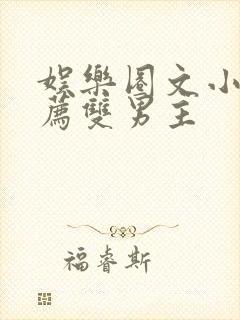 娛樂圈文小
薦雙男主
福睿斯